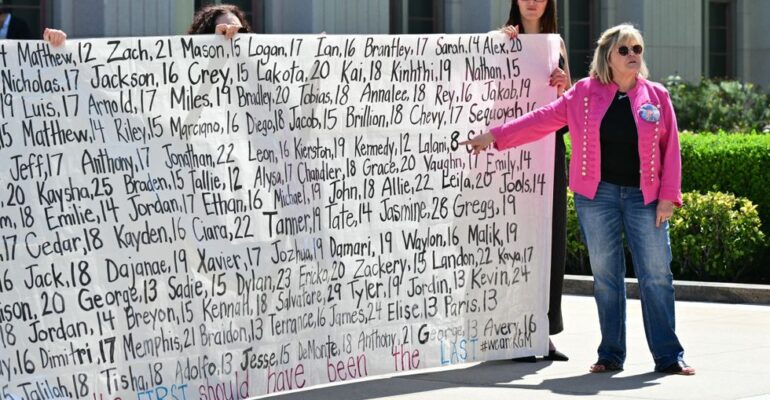 Matthew,12 Zach,21 Mason,14 Logan,17 Ian,16 Brantley,17 Sarah,14 Alex,
Nicholas,17 Jackson,16 Crey,15 Lakota,20 Kai,18 Kinhthi,19 Nathan,15
19 Luis,17 Arnold,17 Miles,19 Bradley,20 Tobias,18 Annalee,18 Rey,16 Jakob,19
15 Matthew,14 Riley,15 Marciano,16 Diego,18 Jacob,15 Brillion,18 Chevy,17 Sequoyah
Jeff,17 Anthony,17 Jonathan,22 Leon,16 Kierston,19 Kennedy,12 Lalani,8
20 Kaysha,25 Braden,15 Tallie,12 Alysa,17 Chandler,18 Grace,20 Vaughn,17 Emily,14
18 Emilie,14 Jordan,17 Ethan,16 Michael,19 John,18 Allie,22 Leila,20 Jools,14
17 Cedar,18 Kayden,16 Ciara,22 Tanner,19 Tate,14 Jasmine,26 Gregg,19
16 Jack,18 Dajanae,19 Xavier,17 Jozhua,19 Damari,19 Waylon,16 Malik,19
20 George,13 Sadie,15 Dylan,23 Ericka,20 Zackery,15 Landon,22 Kaya,17
18 Jordan,14 Breyon,15 Kennah,18 Salvatore,29 Tyler,19 Jordin,13 Kevin,24
16 Dimitri,17 Memphis,21 Braldon,13 Terrance,16 James,24 Elise,13 Paris,13
Jalilah,18 Tisha,18 Adolfo,13 Jesse,15 DeMonte,18 Anthony,21 George,13 Avery,16
the FIRST should have been the LAST #wearKGM